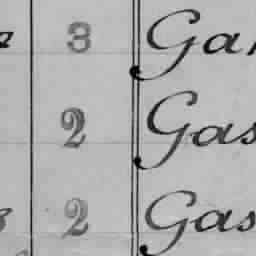 3 Gar
2 Gas
2 Gas